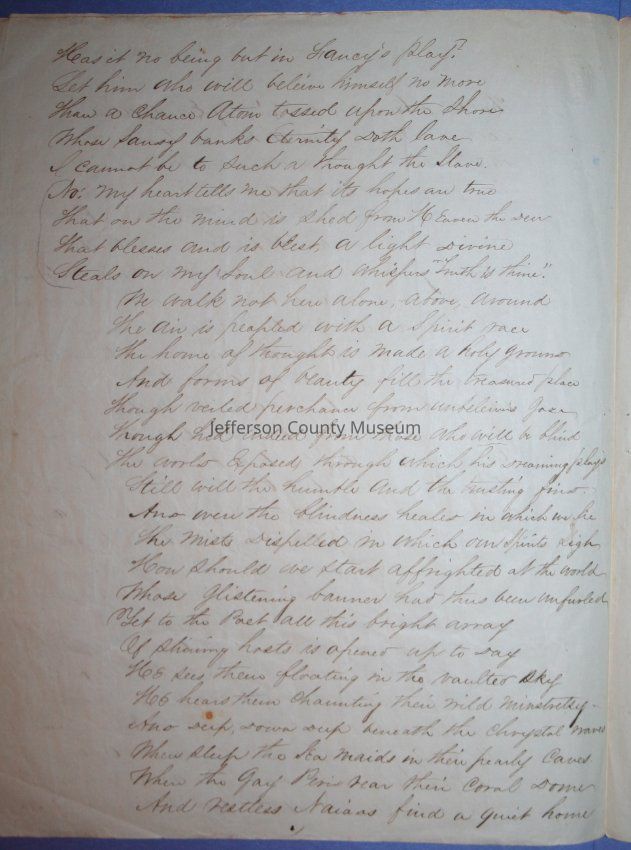 Has it no being but in Fancy's play?
Let him who will beleive himself no more
Than a chance Atom tossed upon the Shore
Whose Sandy banks Eternity doth lave
I cannot be to such a thought the Slave.
No: my heart tells me that its hopes are true
That on the mind is shed from Heaven the dew
That blesses and is blest, a light Divine
Steals on my Soul and whispers "Truth is thine".
We walk not here alone, above, around
The air is peopled with a Spirit race
The home of thought is made a holy ground
And forms of beauty fill the treasured place
Though veiled perchance from unbeleivers Gaze
Jefferson County Museum
Though hid indeed from those who will be blind
The world Exposed, through which his dreaming plays
Still will the humble and the trusting find.
And were the blindness healed in which we
The mists dispelled in which our Spirits sigh
How should we start affrighted at the world
Whose Glistening banner had thus been unfurled
Yet to the Poet all this bright array
Of Shining hosts is opened up to day
He sees them floating in the vaulted sky
He hears them Chaunting their wild minstrelsy
And deep, down deep beneath the Chrystal waves
Where sleep the Sea Maids in their pearly Caves
Where the Gay Peris rear their Coral Dome
And restless Naiads find a quiet home